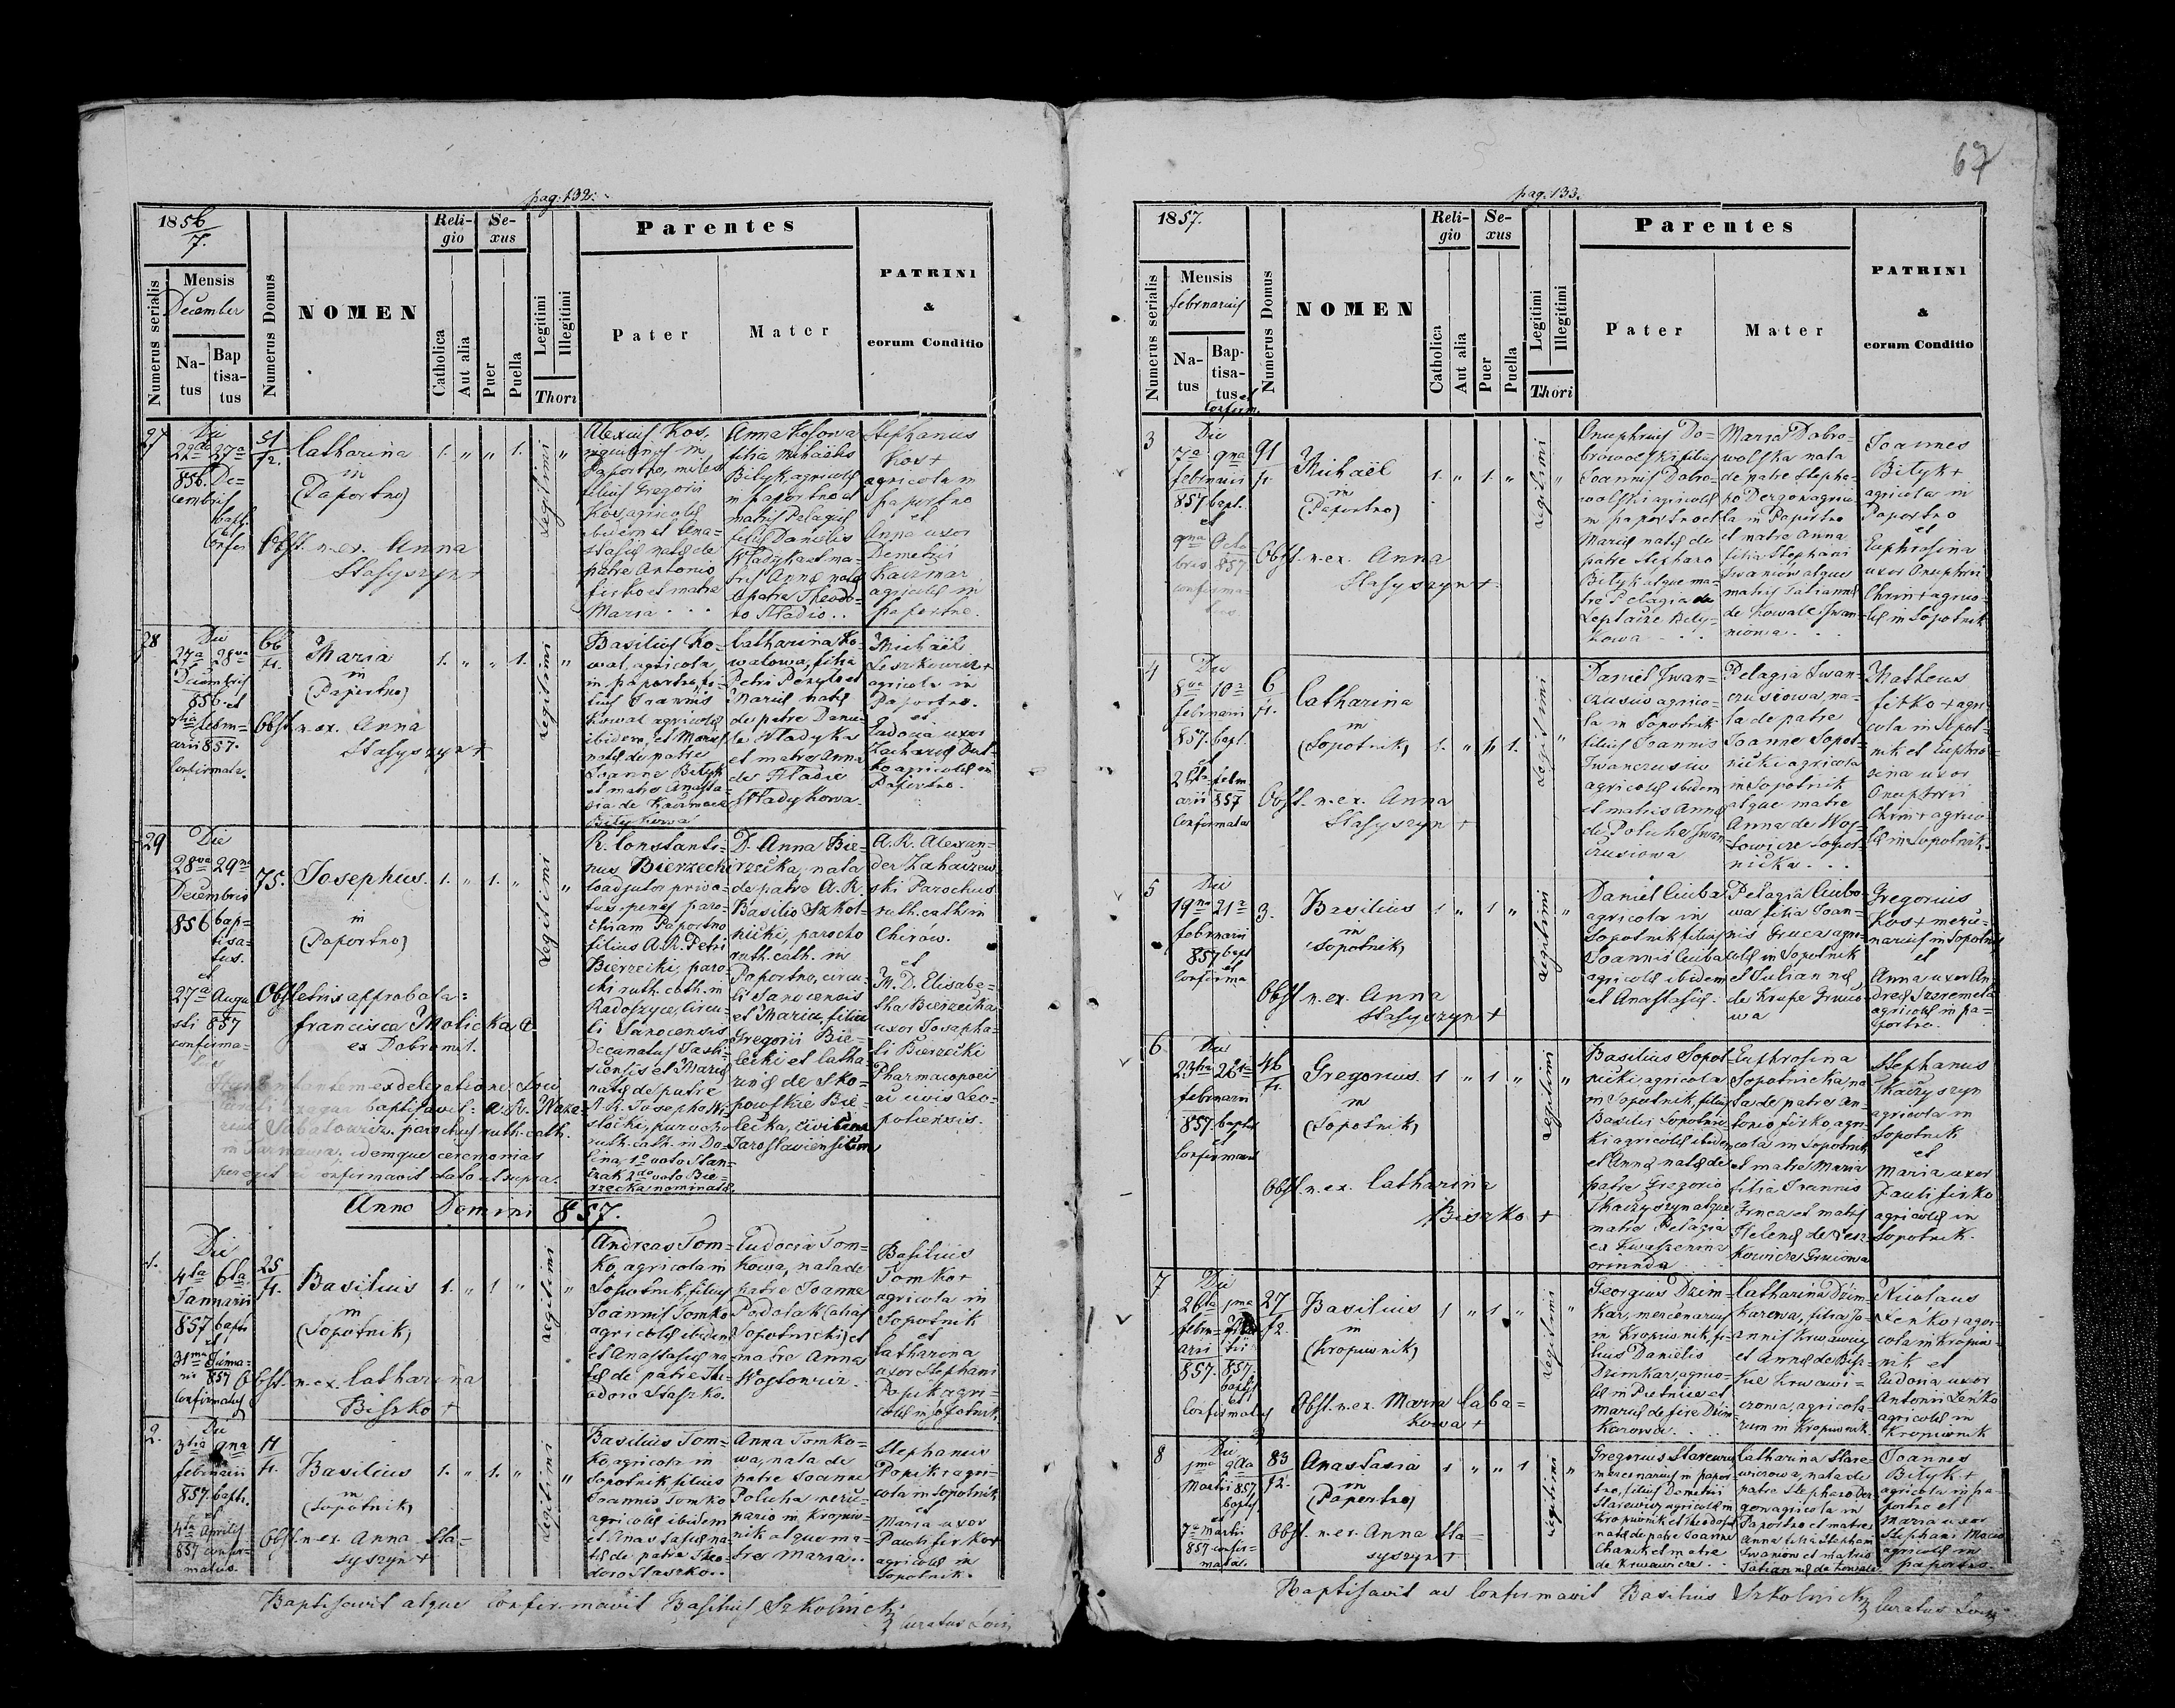 pag. 132.
1856/7.
Numerus serialis
Mensis
December
Natus
Baptisatus
Numerus Domus
NOMEN
Religio
Catholica
Aut alia
Sexus
Puer
Puella
Legitimi
Illegitimi
Thori
Parentes
Pater
Mater
PATRINI
&
eorum Conditio
27
Die
22da 27a
856. De-
cembris
bapt.
et
Confir
51
Catharina
in
(Paportno)
Obst. n. ex. Anna
Stasyszyn +
1. " " 1.
Legitimi
"
Alexius Kos,
in
Paportno, miles
filius Gregorii
Kos agricolæ
ibidem et Ana-
stasiæ natæ de
patre Antonio
firko et matre
Maria
Anna Kosowa
filia Mihaelis
Bilyk agricolæ
in paportno et
matris Pelagiæ
filiæ Danielis
Wladyka et ma-
tris Annæ natæ
de patre Theodo-
ro Hladio..
Stephanus
Kos +
agricola in
paportno
et
Anna uxor
Demetrii
Kaczmar
agricolæ in
paportno.
28
Die
27a 28va
Decembris
856. et
7tia febru-
arii 857.
Confirmata.
66
Maria
in
(Paportno)
Obst. n. ex. Anna
Stasyszyn +
1. " " 1.
Legitimi
"
Basilius Ko-
wal, agricola
in paportno, fi-
lius Joannis
Kowal agricolæ
ibidem, et Mariæ
natæ de patre
Joanne Bilyk
et matre Anasta-
sia de Kaczmare
Bilykowa
Catharina Ko-
walowa, filia
Petri Penzyla et
Mariæ natæ
de patre Danie-
le Wladyka
et matre Anna
de Hladie
Wladykowa.
Michaël
Liszkowicz +
agricola in
Paportno.
et
Eudocia uxor
Zachariæ Dut-
ko agricolæ in
Paportno.
29
Die
28va 29na
Decembris
856 bap-
tisa-
tus.
et
27a Augu
sti 857
confirma-
tus
75.
Josephus.
in
(Paportno)
Obstetrix approbata:
Francisca Molicka,
ex Dobromil.
1. " 1. "
Legitimi
"
R. Constanti-
nus Bierzecki
Coadjutor priva-
tus penes paro-
chiam Paportno
filius A. R. Petri
Bierzecki, paro-
chi ruth. cath. in
Radoszyce, Circu-
li Sanocensis
Decanatus Jasli-
censis et Mariæ
natæ de patre
A. R. Josepho Wi-
slocki, parocho
ruth. cath. in Do-
lina, 1o voto Stan-
czak 2do voto Bie-
rzecka nominatæ.
D. Anna Bie-
rzecka, nata
de patre A. R.
Basilio Szkol-
nicki, parocho
ruth. cath. in
Paportno, circu-
li Sanocensis
et Maria, filia
Gregorii Bie-
lecki et Catha-
rinæ de Sko-
powskie Bie-
lecka, civibus
Jaroslaviensibus
A. R. Alexan-
der Zahaizew-
ski Parochus
ruth. cath. in
Chirów.
et
M. D. Elisabe-
tha Bierzecka
uxor Josapha-
ti Bierzecki
Pharmacopoei
ac civis Leo-
poliensis.
ex delegatione Loci
baptisavit: A. R.
Sabatowicz parochus ruth. cath.
in Tarnawa, idemque ceremonias
peregit et confirmavit dato ut supra.
Anno Domini 857.
1.
Die
4ta 6ta
Januarii
857 bapt.
et
31ma Janua-
rii 857
Confirmatus
25
Basilius
in
(Sopotnik)
Obst. n. ex. Catharina
Biszko +
1. " 1 "
Legitimi
"
Andreas Tom-
ko, agricola in
Sopotnik, filius
Joannis Tomko
agricolæ ibidem
et Anastasiæ na-
tæ de patre The-
odoro Staszko.
Eudocia Tom-
kowa, nata de
patre Joanne
Podolak (alias
Sopotnicki) et
matre Anna
Wojtowicz.
Basilius
Tomko +
agricola in
Sopotnik
et
Catharina
uxor Stephani
Papik agri-
colæ in Sopotnik.
2.
Die
3tia 9na
februarii
857. bapt.
et
4ta Aprilis
857 confir-
matus.
11
Basilius
in
(Sopotnik)
Obst. n. ex. Anna Sta-
syszyn +
1. " 1. "
Legitimi
"
Basilius Tom-
ko, agricola in
Sopotnik, filius
Joannis Tomko
agricolæ ibidem
et Anastasiæ na-
tæ de patre Theo-
doro Staszko..
Anna Tomko-
wa, nata de
patre Joanne
Polucha merce-
nario in Kropiw-
nik atque ma-
tre Maria..
Stephanus
Papik + agri-
cola in Sopotnik
et
Maria uxor
Pauli firko +
agricolæ in
Sopotnik.
Baptisavit atque Confirmavit Basilius Szkolnicki
Curatus Loci
67
pag. 133.
1857.
Numerus serialis
Mensis
februarius
Natus
Baptisatus et
Confirm.
Numerus Domus
NOMEN
Religio
Catholica
Aut alia
Sexus
Puer
Puella
Legitimi
Illegitimi
Thori
Parentes
Pater
Mater
PATRINI
&
eorum Conditio
3
Die
7a 9na
februarii
857 bapt.
et
9na Octo
bris 857
confirma-
tus
91
Michaël
in
(Paportno)
Obst. n. ex. Anna
Stasyszyn +
1. " 1. "
Legitimi
"
Onuphrius Do-
browolski filius
Joannis Dobro-
wolski agricolæ
in paportno et
Mariæ natæ de
patre Stephano
Bilyk atque ma-
tre Pelagia de
Bily-
kowa
Maria Dobro-
wolska nata
de patre Stepha-
no Dergon agrico-
la in Paportno
et matre Anna
filia Stephani
Iwaniów atque
matris Tatiannæ
de Kowale Iwa-
niowa
Joannes
Bilyk +
agricola in
Paportno
et
Euphrosina
uxor Onuphrii
Chrin + agrico-
læ in Sopotnik
4
Die
8va 10a
februarii
857. bapt.
et
28va febru
arii 857
Confirmatus
6
Catharina
in
(Sopotnik)
Obst. n. ex. Anna
Stasyszyn +
1. " 1.
Legitimi
"
Daniel Iwan-
czusiw agrico-
la in Sopotnik
filius Joannis
Iwanczusiw
agricolæ ibidem
et matris Annæ
de Poluche Iwan-
czusiowa
Pelagia Iwan-
czusiowa, na-
ta de patre
Joanne Sopot-
nicki agricola
in Sopotnik
atque matre
Anna de Woj-
towicze Sopot-
nicka...
Matheus
firko + agri-
cola in Sopot-
nik et Euphro-
sina uxor
Onuphrii
Chrin + agrico-
læ in Sopotnik.
5
Die
19na 21a
februarii
857 bapt
et
Confirma
3.
Basilius
in
Sopotnik)
Obst n. ex. Anna
Stasyszyn +
1 " 1 "
Legitimi
"
Daniel Ciuba
agricola in
Sopotnik filius
Joannis Ciuba
agricolæ ibidem
et Anastasiæ.
Pelagia Ciubo-
wa filia Joan-
nis Gruca agri-
colæ in Sopotnik
et Juliannæ
de Krupe Gruco-
wa
Gregorius
Kos + merce-
narius in Sopotnik
et
Anna uxor An-
dreæ Szeremeta
agricolæ in pa-
portno.
6
Die
23tia 26ta
februarii
857. baptis
et
Confirmatus
46
Gregorius.
in
(Sopotnik)
Obst. n. ex. Catharina
Biszko +
1 " 1 "
Legitimi
"
Basilius Sopot-
nicki, agricola
in Sopotnik, filius
Basilii Sopotnic-
ki agricolæ ibidem
et Annæ natæ de
patre Gregorio
Tkaczyszyn atque
matre Pelagia
ex Kwaszenina
oriunda
Euphrosina
Sopotnicka, na-
ta de patre An-
tonio firko, agri-
cola in Sopotnik
et matre Maria
filia Joannis
Gruca et matris
Helenæ de Lesz-
kowicze Grucowa
Stephanus
Tkaczyszyn
agricola in
Sopotnik
et
Maria uxor
Pauli firko
agricolæ in
Sopotnik.
7
Die
26ta 1ma
febru- Mar
arii tii
857. 857.
baptis
et
Confirmatus
27
Basilius
in
(Kropiwnik)
Obst. n. ex. Maria Caba-
kowa +
1 " 1 "
Legitimi
"
Georgius Dzim-
kar, mercenarius
in Kropiwnik, fi-
lius Danielis
Dzimkar, agrico-
læ in Pietnice et
Mariæ de fire Dzim-
karowa..
Catharina Dzim-
karowa, filia Jo-
annis Krwawicz
et Annæ de Bisz-
kie Krwawi-
czowa, agricola-
rum in Kropiwnik.
Nicolaus
Leńko + agri-
cola in Kropiw-
nik et
Eudocia uxor
Antonii Leńko
agricolæ in
Kropiwnik
8
Die
1ma
Martii 857
baptis
et
7a Martii
857 confir-
mata.
83
Anastasia
in
(Paportno)
Obst. n. ex. Anna Sta-
syszyn +
1 " " 1
Legitimi
"
Gregorius Starewicz
mercenarius in papor-
tno, filius Demetrii
Starewicz agricolæ in
Kropiwnik et Theodosiæ
natæ de patre Joanne
Chanik et matre
de Krwawicze..
Catharina Stare-
wiczowa, nata de
patre Stephano Der-
gon agricola in
Paportno et matre
Anna filia Stephani
Iwaniow et matris
Tatiannæ de Kowale.
Joannes
Bilyk +
agricola in pa-
portno et
Maria uxor
Stephani
agricolæ in
paportno.
Baptisavit ac Confirmavit Basilius Szkolnicki
Curatus Loci